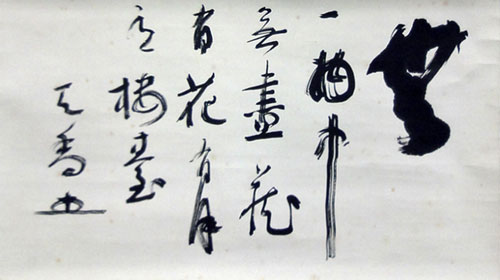 無
一物中
無盡藏
有花有月
有樓臺
天香